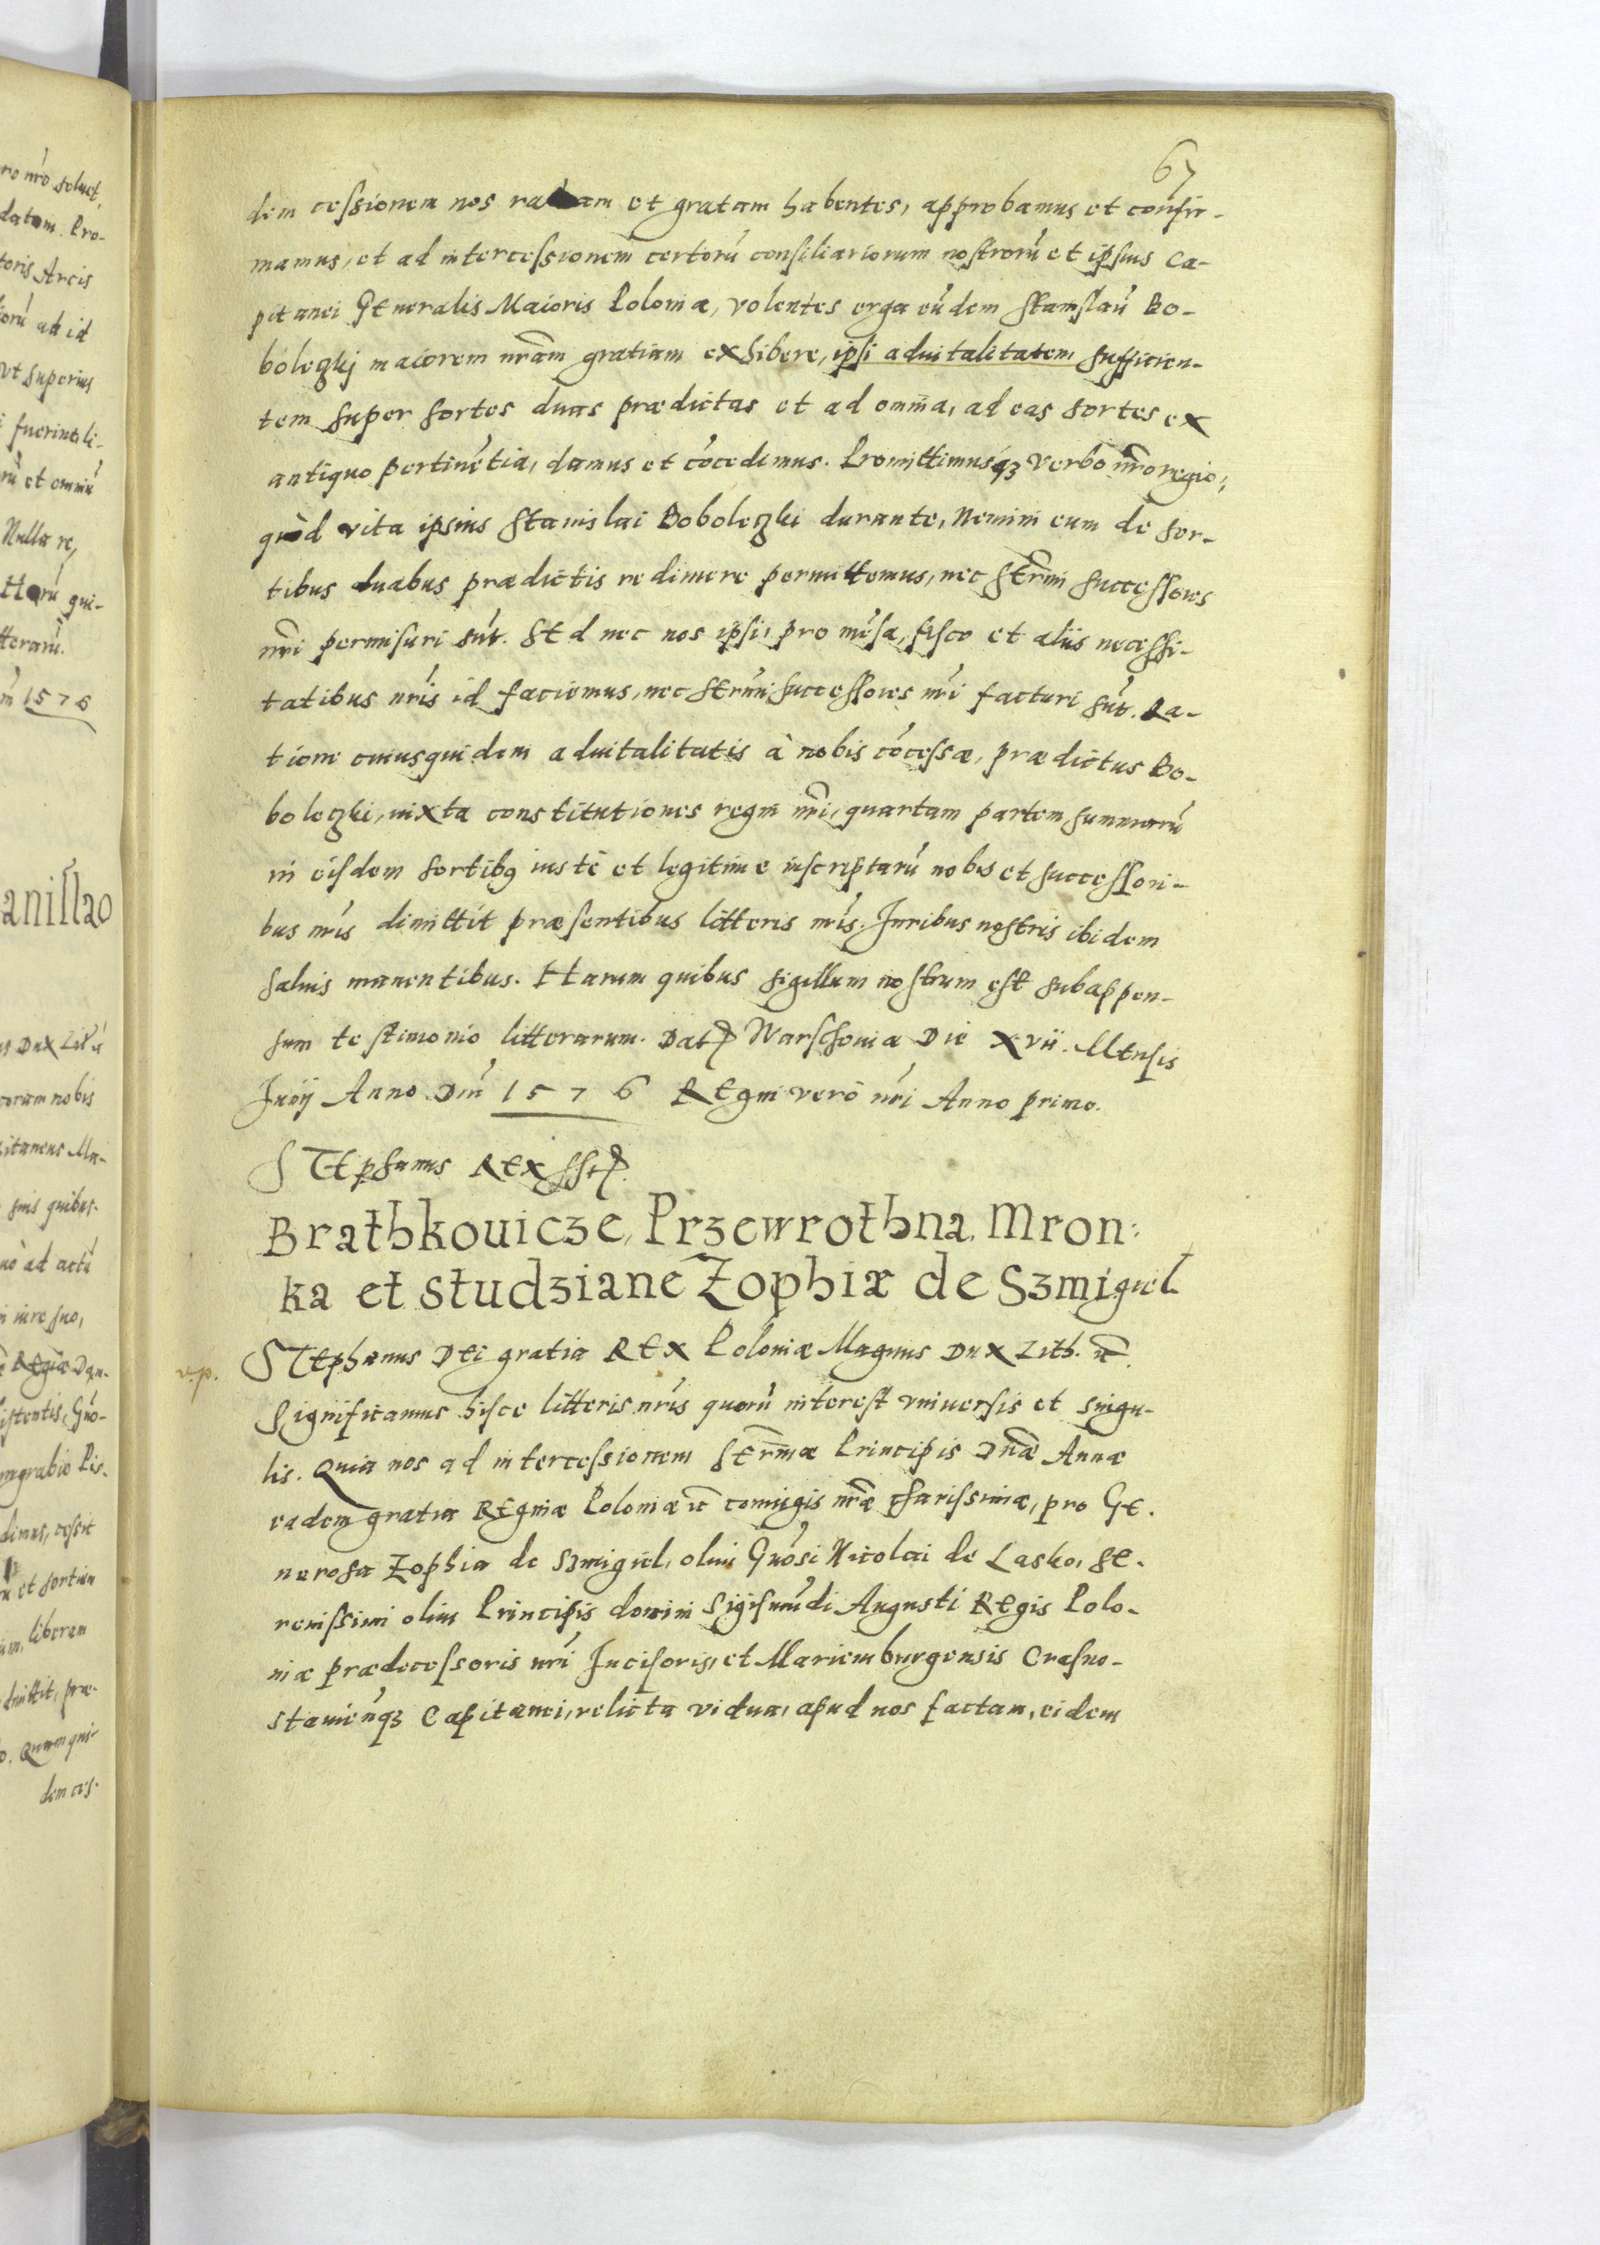 67
dem cessionem nos ratam et gratam habentes, approbamus et confir-
mamus, et ad intercessionem certorū consiliariorum nostrorū et ipsius Ca-
pitanei Generalis Maioris Poloniæ, volentes erga eūdem Stanislaū Bo-
boleczkj maiorem nrām gratiam exhibere, ipsi aduitalitatem sufficien-
tem super sortes duas prædictas et ad omnia, ad eas sortes ex
antiquo pertinētia, damus et cōcedimus. Promittimusqz verbo nro regio,
quòd vita ipsius Stanislai Boboleczki durante, Nemini eum de sor-
tibus duabus prædictis redimere permittemus, nec Sermi successores
nri permisuri sūt. Sed nec nos ipsi, pro mēsa, fisco et aliis necessi-
tatibus nris id faciemus, nec Sermi successores nri facturi sūt. Ra-
tione cuiusquidem aduitalitatis à nobis cōcessæ, prædictus Bo-
boleczki, iuxta constitutiones regni nri, quartam partem summarū
in eisdem sortibq iustè et legitime inscriptarū nobis et successori-
bus nris dimittit præsentibus litteris nris. Iuribus nostris ibidem
saluis manentibus. Harum quibus sigillum nostrum est subappen-
sum testimonio litterarum. Dat Warschouiæ Die xvii. Mensis
Iunij Anno Dni 1576 Regni verò nri Anno primo.
Stephanus Rex sst
Brathkouicze, Przewrothna, Mron:
ka et studziane Zophiæ de Szmigiel
v.p.
Stephanus Dei gratia Rex Poloniæ Magnus Dux Lith. etc.
Significamus hisce litteris nris quorū interest vniuersis et singu-
lis. Quia nos ad intercessionem Sermæ Principis Dnæ Annæ
eadem gratia Reginæ Poloniæ etc coniugis nræ charissimæ, pro Ge-
nerosa Zophia de Szmigiel, olim Gnosi Nicolai de Lasko, Se-
renissimi olim Principis domini Sigismūdi Augusti Regis Polo-
niæ prædecessoris nri Incisoris, et Mariemburgensis Crasno-
stauieñqz Capitanei, relicta vidua, apud nos factam, eidem